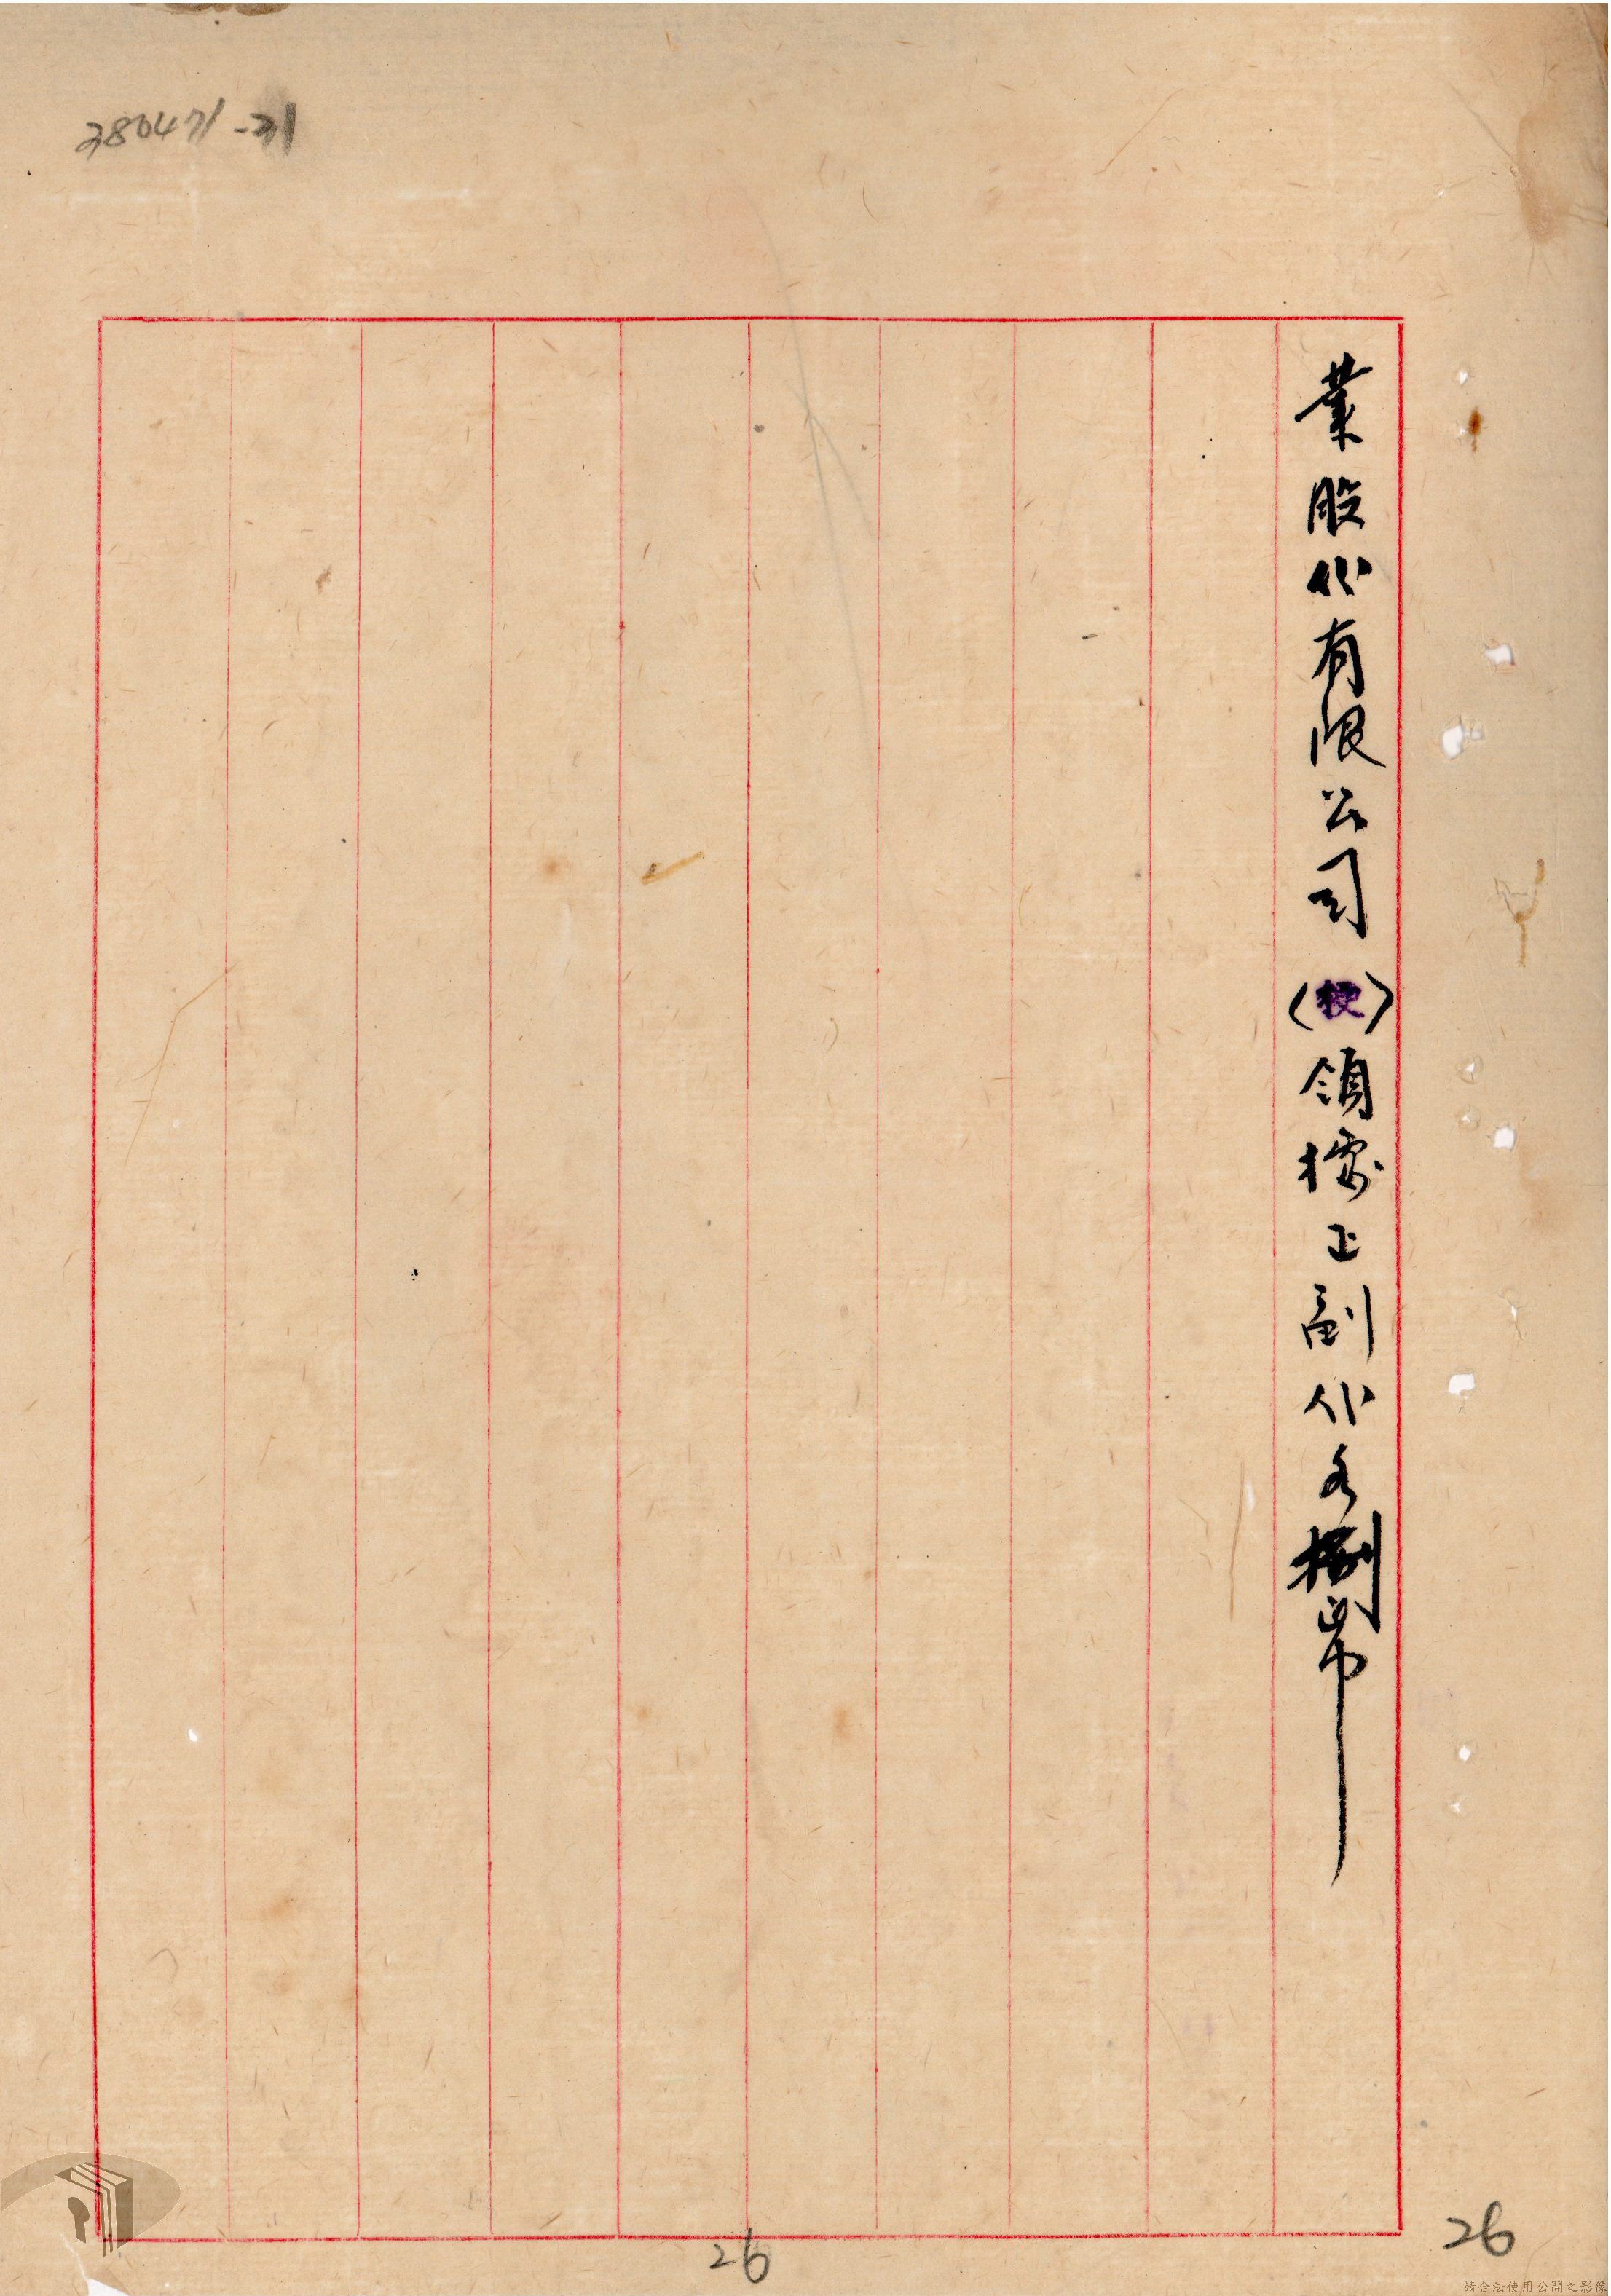 280471-21
業股份有限公司(校)領據正副份各捌帋
26
26
請合法使用公開之影像